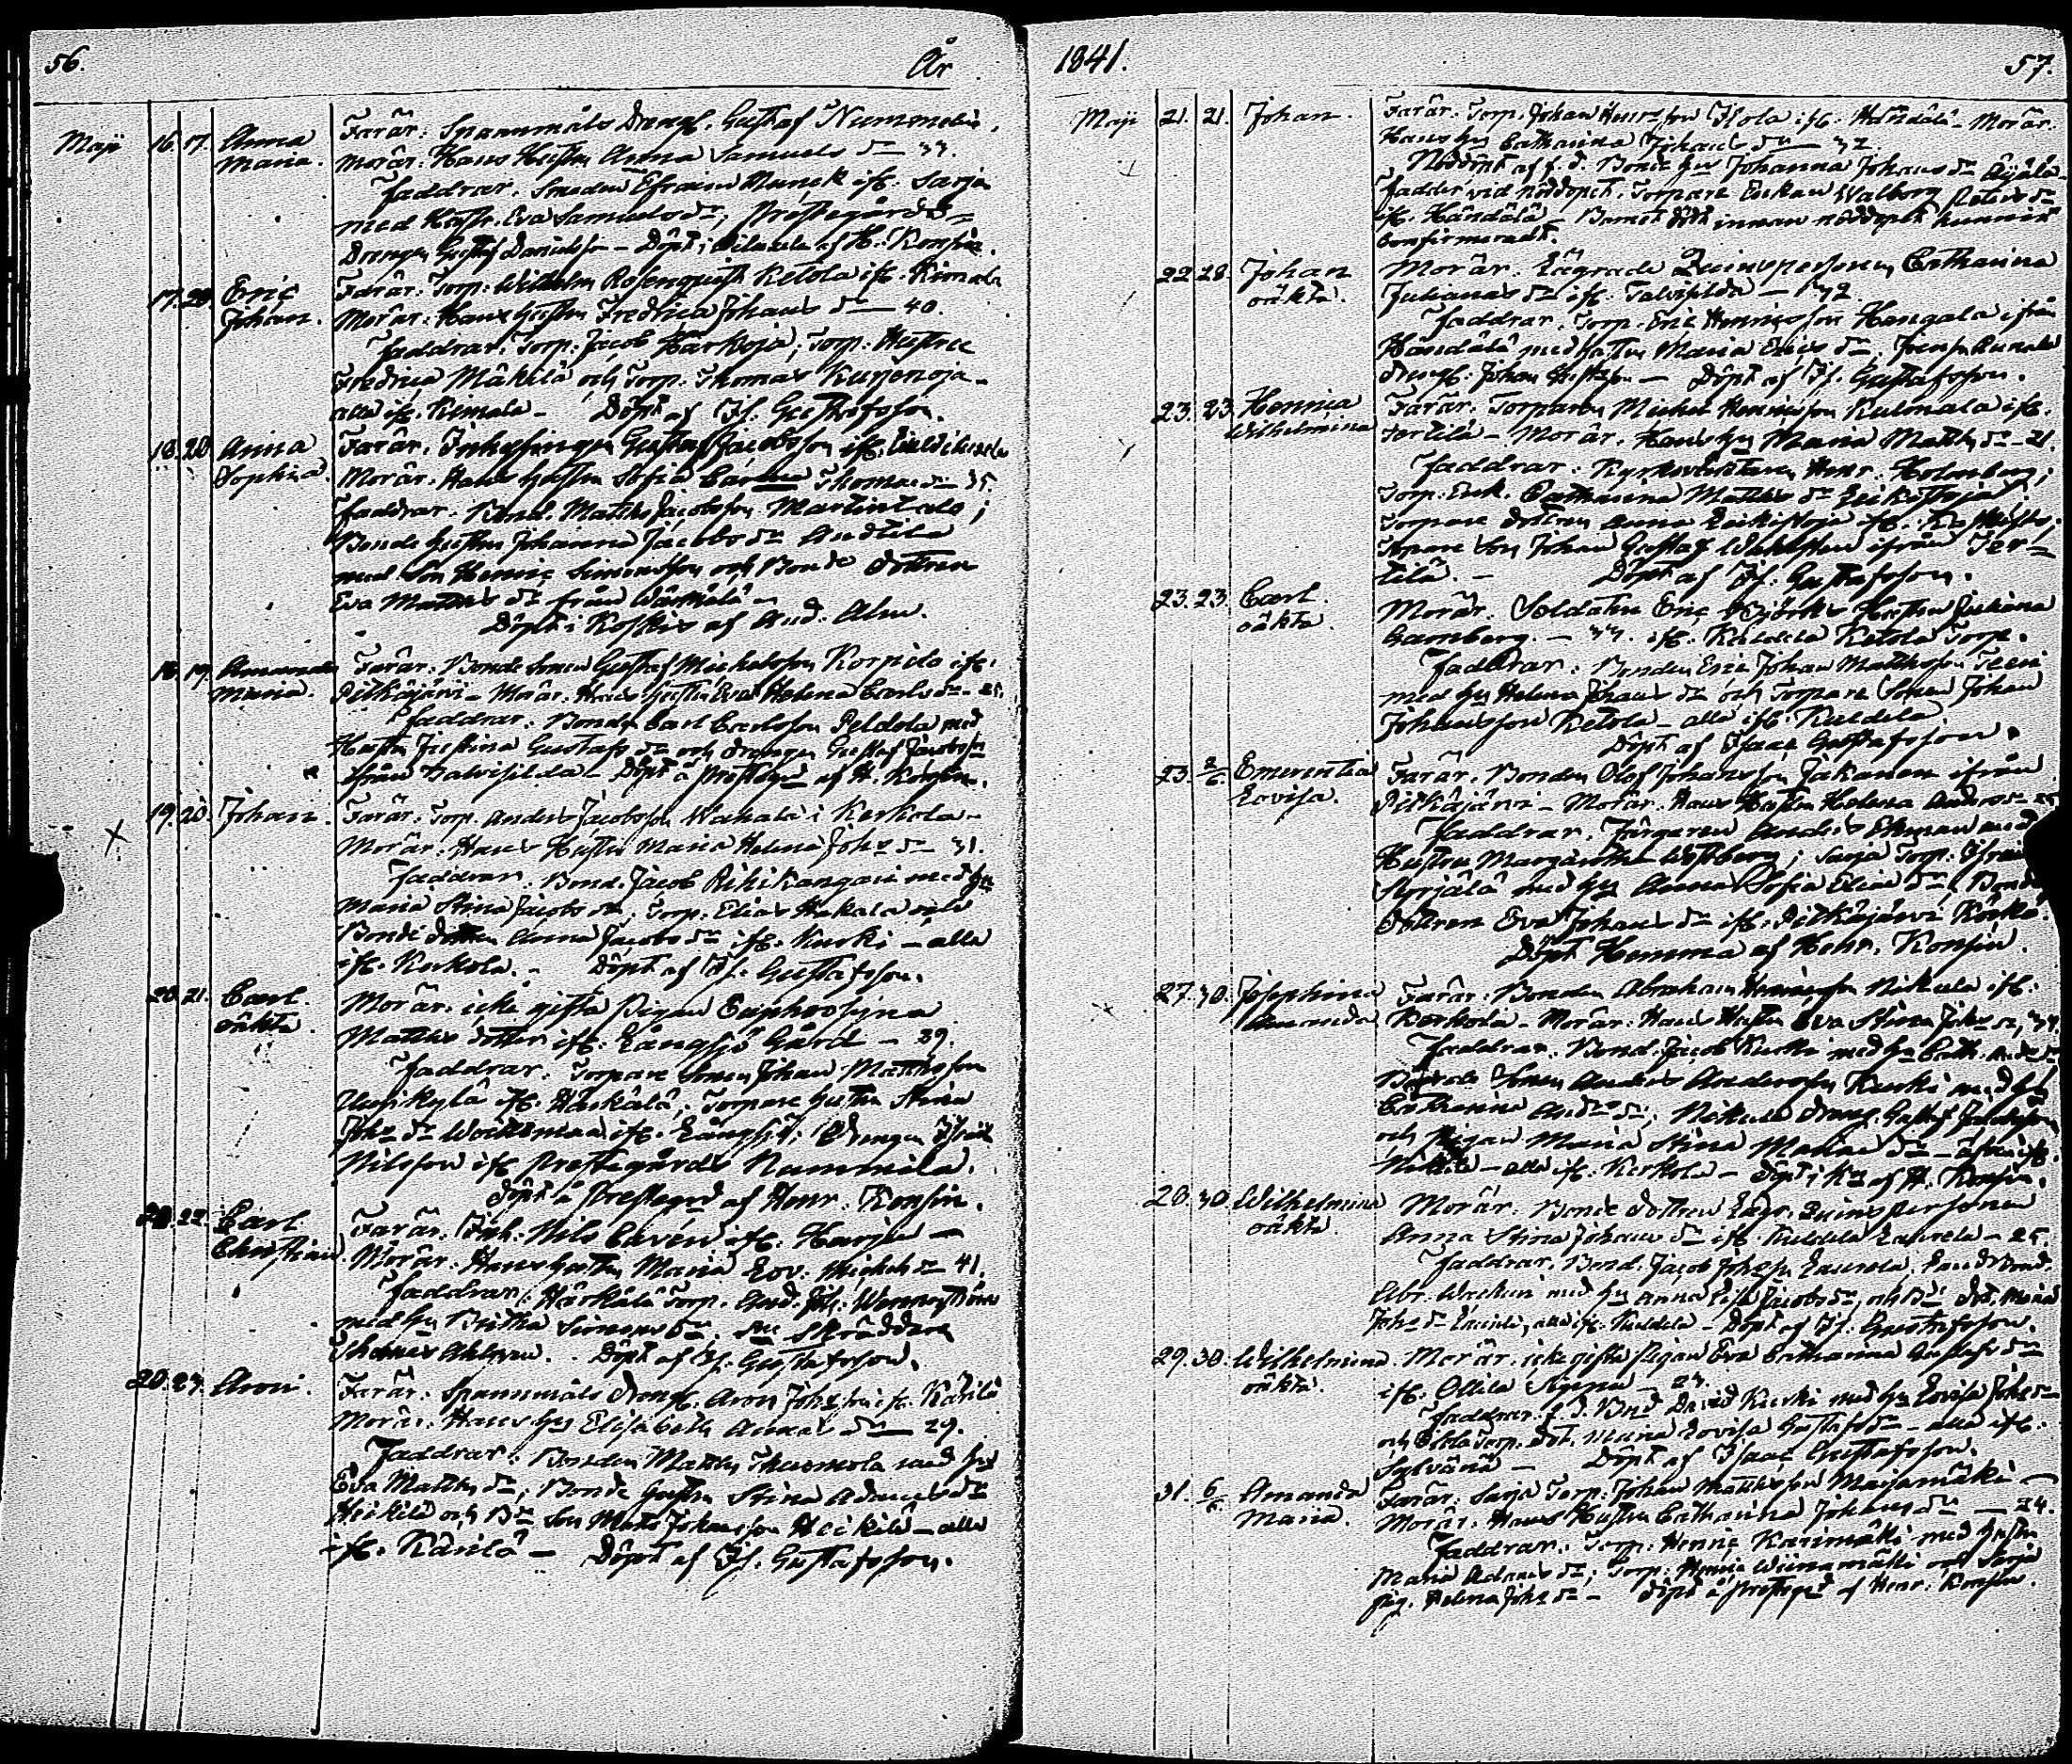 56.
År
Maji 16. 17. Anna Maria.
Farär: Spannmåls Dreng. Gustaf Nummelin,
Morär: Hans Hustru Anna Samuels dr 33.
Faddrar. Smeden Efraim Munck ifr. Sarja
med Hustr. Eva Samuels dr; Prestegårds=
Drengen Gustaf Danielsson – Döpt i af H. Konsin.
17. 20. Eric Johan.
Farär: Torp: Wilhelm Rosenqvist Ketola ifr. Kimala
Morär: Hans Hustru Fredrica Johans dr – 40.
Faddrar: Torp: Jacob Härkoja; Torp: Hustru
Fredrica Mäkilä och Torp: Thomas Kurjenoja –
alla ifr. Kimala – Döpt af Is. Gustafsson.
18. 20. Anna Sophia.
Farär. Inhysingen Gustaf Jacobsson ifr.
Morär: Hans Hustru Sofia Thomae dr 35.
Faddrar. Bond. Matths Jacobsson Martintalo;
Bonde Hustru Johanna Jacobs dr Anttila
med Son Henric Simonsson och Bonde dottren
Eva Matths dr från
Döpt i Koskis af And. Alm.
18. 19. Amanda Maria.
Farär: Bonde Sonen Gustaf Michelsson Korpilo ifr.
Pitkäjärvi – Morär: Hans Hustru Eva Helena Carls dr – 25.
Faddrar: Bonden Carl Carlsson Peldola med
Hustru Justina Gustafs dr och Drengen Gustaf Jacobsson
ifrån Talvisilda – Döpt å Prestegd af H. Konsin.
19. 20. Johan.
Farär: Torp. Anders Jacobsson Wahala i Kerkola –
Morär: Hans Hustru Maria Helena Johs dr 31.
Faddrar: Bond. Jacob Rihikangari med Hu
Maria Stina Jacobs dr; Torp: Elias Hakala och
Bonde dottren Anna Jacobs dr ifr. Kurki – alla
ifr. Kerkola. – Döpt af Is. Gustafsson.
20. 21. Carl. oäkta.
Morär: icke gifta Pigan Euphrosyna
Matths dotter ifr. Långsjö Gård – 29.
Faddrar: Torpare Sonen Johan Matthsson
Uusikylä ifr. Härkälä; Torpare Hustru Stina
Johs dr ifr. Långsjö; Drengen Israel
Nilsson ifr. Prestegårds Nummila.
Döpt å Prestegd af Henr. Konsin.
20. 22. Carl Christian.
Farär: Inh. Nils Cavén ifr. Harju –
Morär: Hans Hustru Maria Lov: Michels dr 41.
Faddrar: Härkälä Torp. And: Joh: Wennerström
med Hu Britha Simons dr; Skräddern
Thomas Ahlgren. Döpt af Is. Gustafsson.
20. 23. Aron.
Farär: Spannmåls dreng. Aron Johsson ifr. Karilä
Morär: Hans Hu Elisabeth Annas dr – 29.
Faddrar: Bonden Matths Thuomola med Hu
Eva Matths dr; Bonde Hustru Stina Adams dr
Heikilä och Bde Son Mats Johansson Heikilä – alla
ifr. Karilä – Döpt af Is. Gustafsson.
1841.
57.
Maji 21. 21. Johan.
Farär. Torp. Johan Henricsson Isola ifr. Händälä – Morär:
Hans Hu Catharina Johans dr 32.
Nöddöpt af f. d. Bonde Hu Johanna Johans dr
Fadder vid nöddopet. Torpare Enkan Walborg Peters dr
ifr. Händälä – Barnet dödt innan nöddopet hunnit
Confirmeradt.
22 28. Johan oäkta.
Morär. Lägrade Qvinspersonen Catharina
Juliana dr ifr. Talvisilda – 32.
Faddrar: Torp. Eric Henricsson Hongala ifrån
Händälä med Hustru Maria Erics dr,
dreng. Johan Gustafsson – Döpt af Is. Gustafsson.
23. 23. Hennia Wilhelmina
Farär. Torparen Michel Henricsson Kulmala ifr.
Tertilä – Morär. Hans Hu Maria Matths dr – 21.
Faddrar: Kyrkoväktaren Henr. Holmberg;
Torp. Enk. Catharina Matths dr Leikistoja;
Torpare dottren Anna Leikistoja ifr.
Torpare Son Johan Gustaf Wahlsten ifrån Ter=
tilä. – Döpt af Is. Gustafsson.
23. 23. Carl. oäkta.
Morär. Soldaten Eric Björks Hustru Juliana
Gamberg. – 33. ifr. Kuldila Ketola Torp.
Faddrar: Bonden Eric Johan Matthsson Teeri
med Hu Helena Johans dr och Torpare Sonen Johan
Johansson Ketola – alla ifr. Kuldila.
Döpt af Isaac Gustafsson.
23. 2/6. Emerentia Lovisa.
Farär. Bonden Olof Johansson Jakanen ifrån
Pitkäjärvi – Morär: Hans Hustru Helena Anders dr 25
Faddrar. Färgaren Anders Ekman med
Hustru Margaretha Westberg; Sarja Torp:
Syrjälä med Hu Anna Sofia Elias dr; Bonde
Dottren Eva Johans dr ifr. Pitkäjärvi
Döpt Hemma af Henr. Konsin.
27. 30. Josephina Amanda
Farär. Bonden Abraham Henricsson Nikula ifr.
Kerkola – Morär: Hans Hustru Eva Stina Johs dr, 34.
Faddrar. Bond. Jacob Kurki med Hu Cath.
Bonde Sonen Anders Andersson Kurki med Hu
Catharina Anders dr; Nikula dreng. Gustaf
och Pigan Maria Stina Maria dr –
– alla ifr. Kerkola – Döpt af H. Konsin.
28. 30. Wilhelmina oäkta.
Morär. Bonde dottren Lägr. Qvinspersonen
Anna Stina Johans dr ifr. Kuldila Laurela – 25.
Faddrar. Bond. Jacob Johsson Laurela,
Abr. med Hu Anna Lisa Jacobs dr, och Bde Dot. Maria
Johs dr Laurila, alla ifr. Kuldila – Döpt af Is. Gustafsson.
29. 30. Wilhelmina oäkta.
Morär. icke gifta Pigan Eva Catharina Gustafs dr
ifr. Ollila – 23.
Faddrar. f. d. Bnd David Kurki med Hu Lovisa Johs dr
och Torp. Dot. Maria Lovisa Gustafs dr – alla ifr.
Sylvänä – Döpt af Isaac Gustafsson.
31. 6/6 Amanda Maria.
Farär: Sarja Torp: Johan Matthsson Maijamäki –
Morär. Hans Hustru Catharina Johans dr – 24.
Faddrar: Torp: Henric Karimäki med Hustru
Maria Adams dr; Torp: Henric Wiinamäki och Sarja
Pig. Helena Johs dr – Döpt å Prestegd af Henr. Konsin.